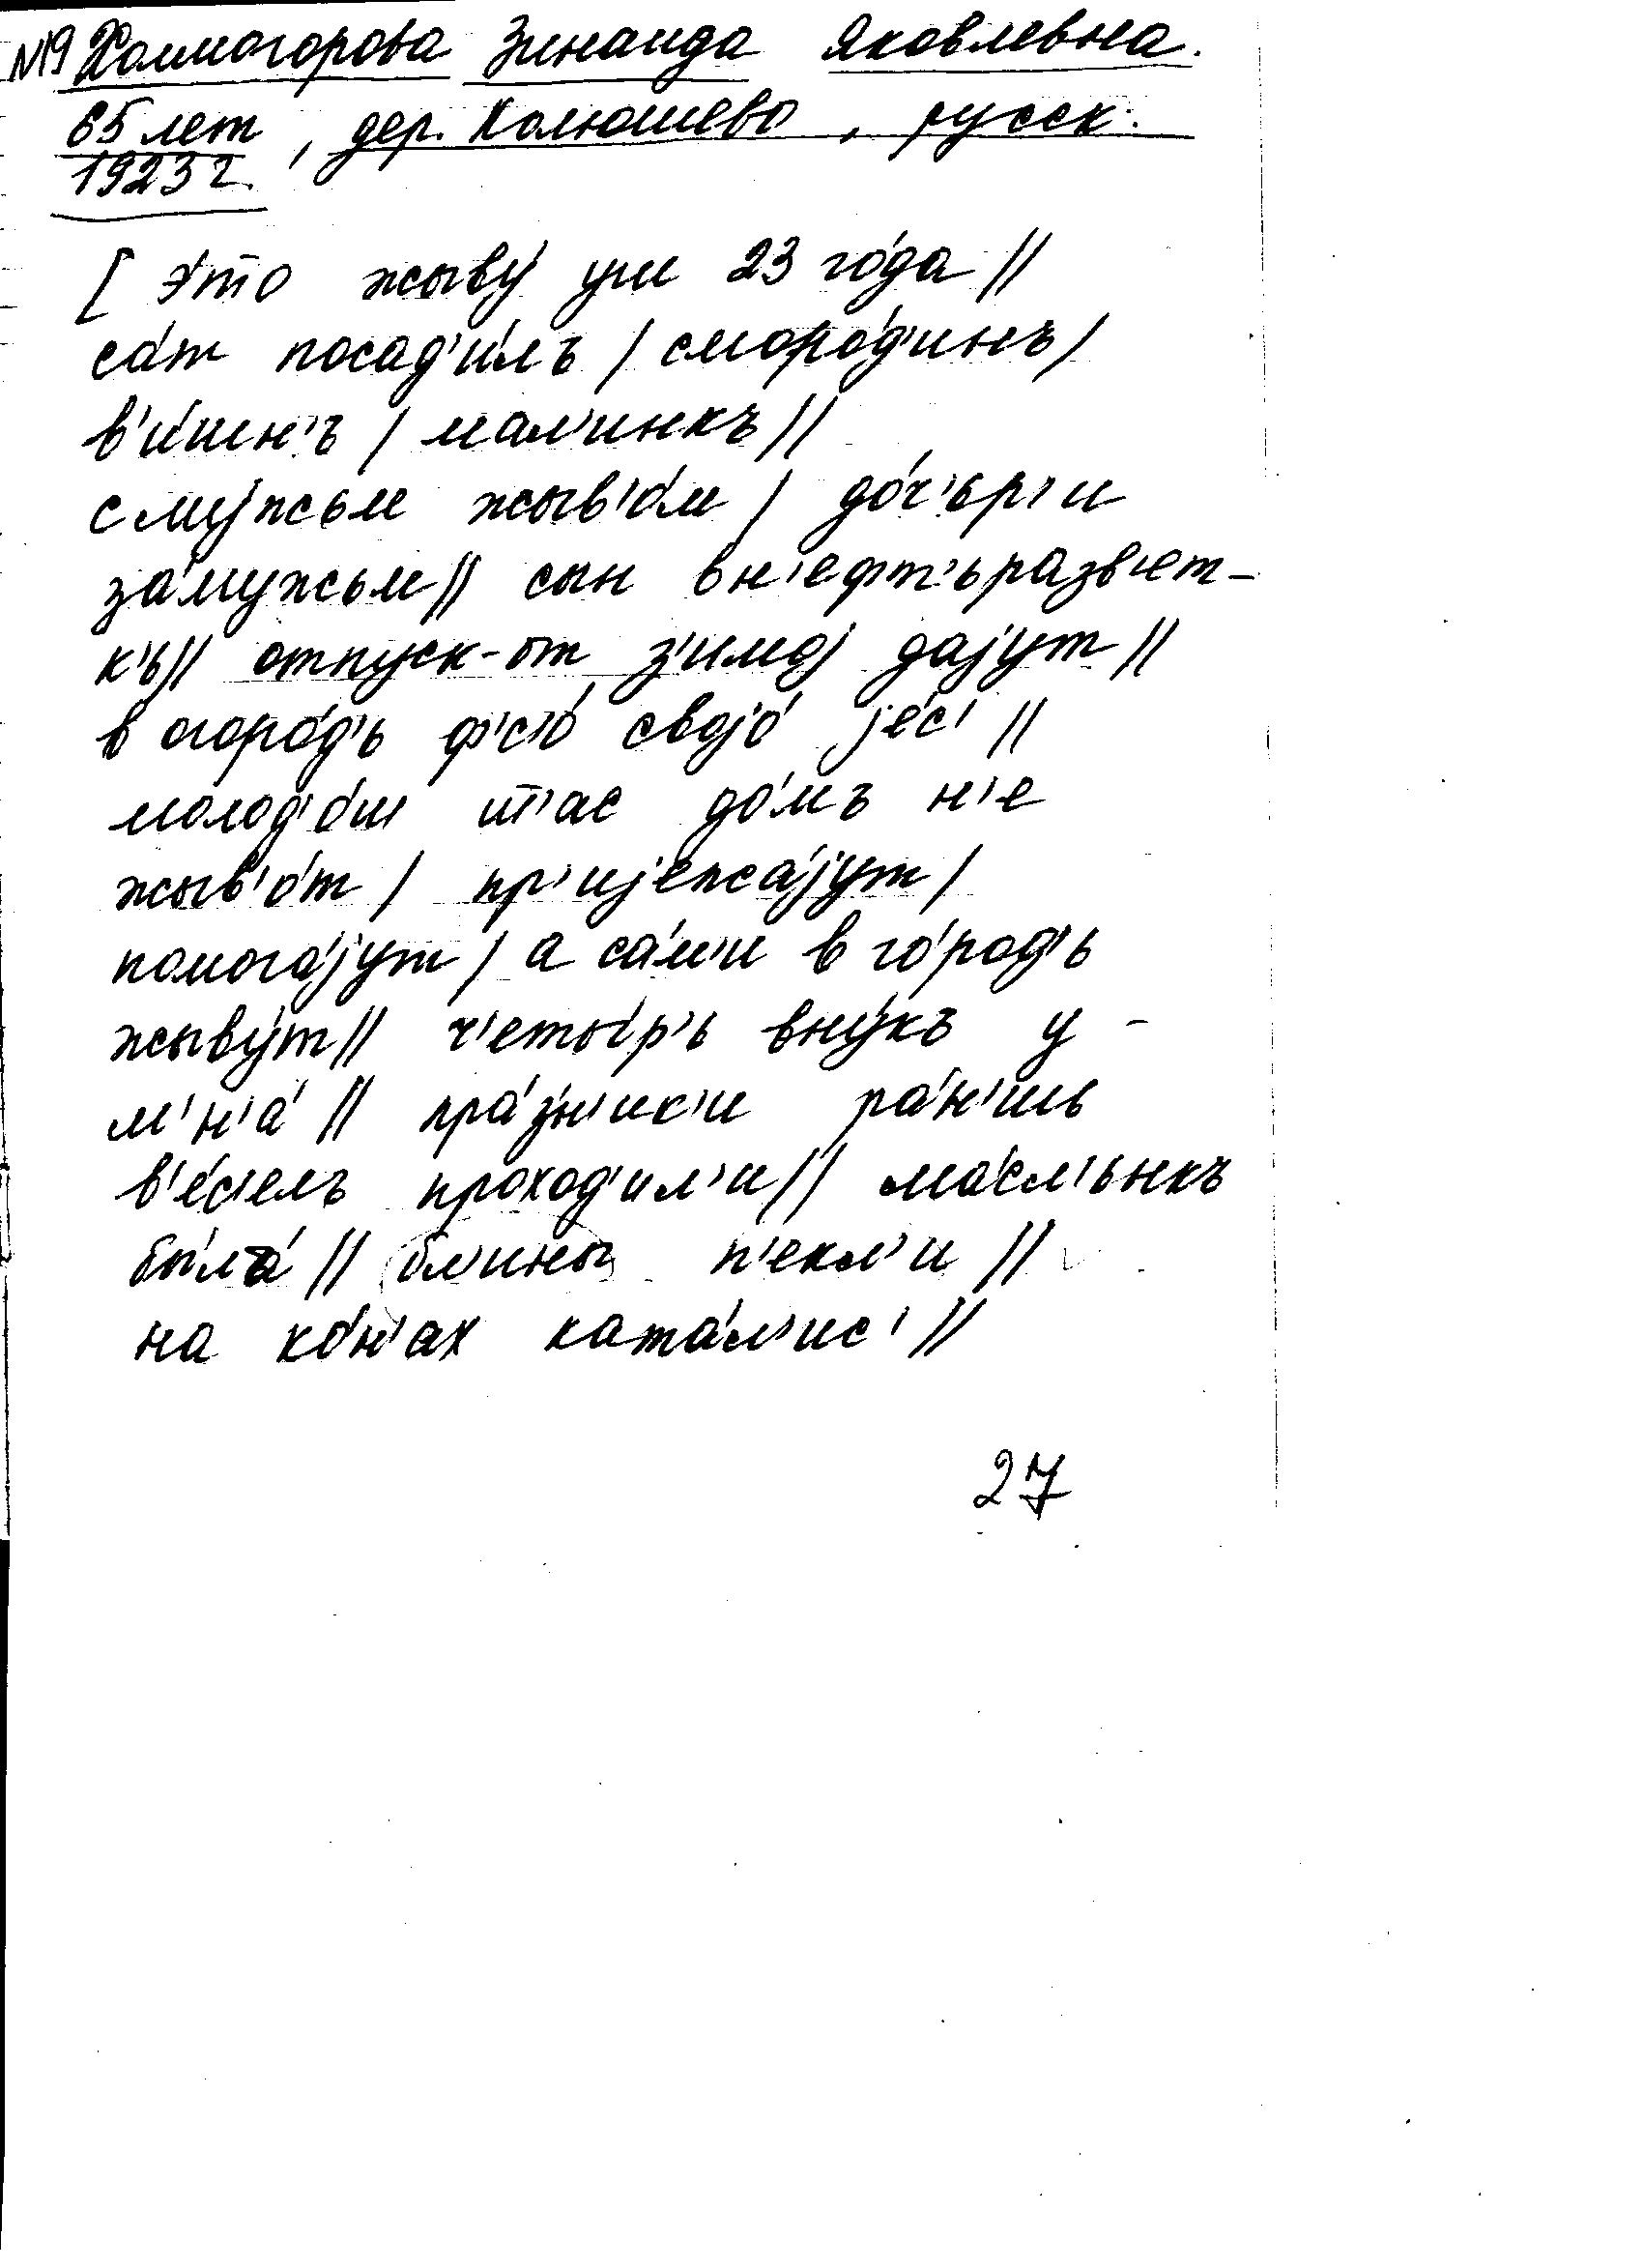 №19 Холмогорова Зинаида Яковлевна.
65 лет, дер. Колюшево, русск.
1923 г.
[ э́то жыву́ уш 23 го́да //
са́т посад'и́лъ / сморо́д'инъ /
в'и́шн'ъ / мал'инкъ //
с му́жьм жыв'о́м / до́ч'ьр'и
за́мужьм // сын в н'ефт'ьразв'ет-
к'ь // отпуск-от з'имоj даjут //
в огоро́д'ь ф'с'о́ своjо́ jе́с' //
молод'о́ш ш'ас до́мъ н'е
жыв'о́т / пр'иjежа́jут /
помога́jут / а са́м'и в го́род'ь
жыву́т // ч'еты́р'ь вну́къ у -
м'н'а́ // пра́з'н'ик'и ра́н'шь
в'е́с'елъ проход'ил'и // ма́сл'ьнкъ
была́ // бл'ины п'екл'и //
на ко́н'ах ката́л'ис' //
27